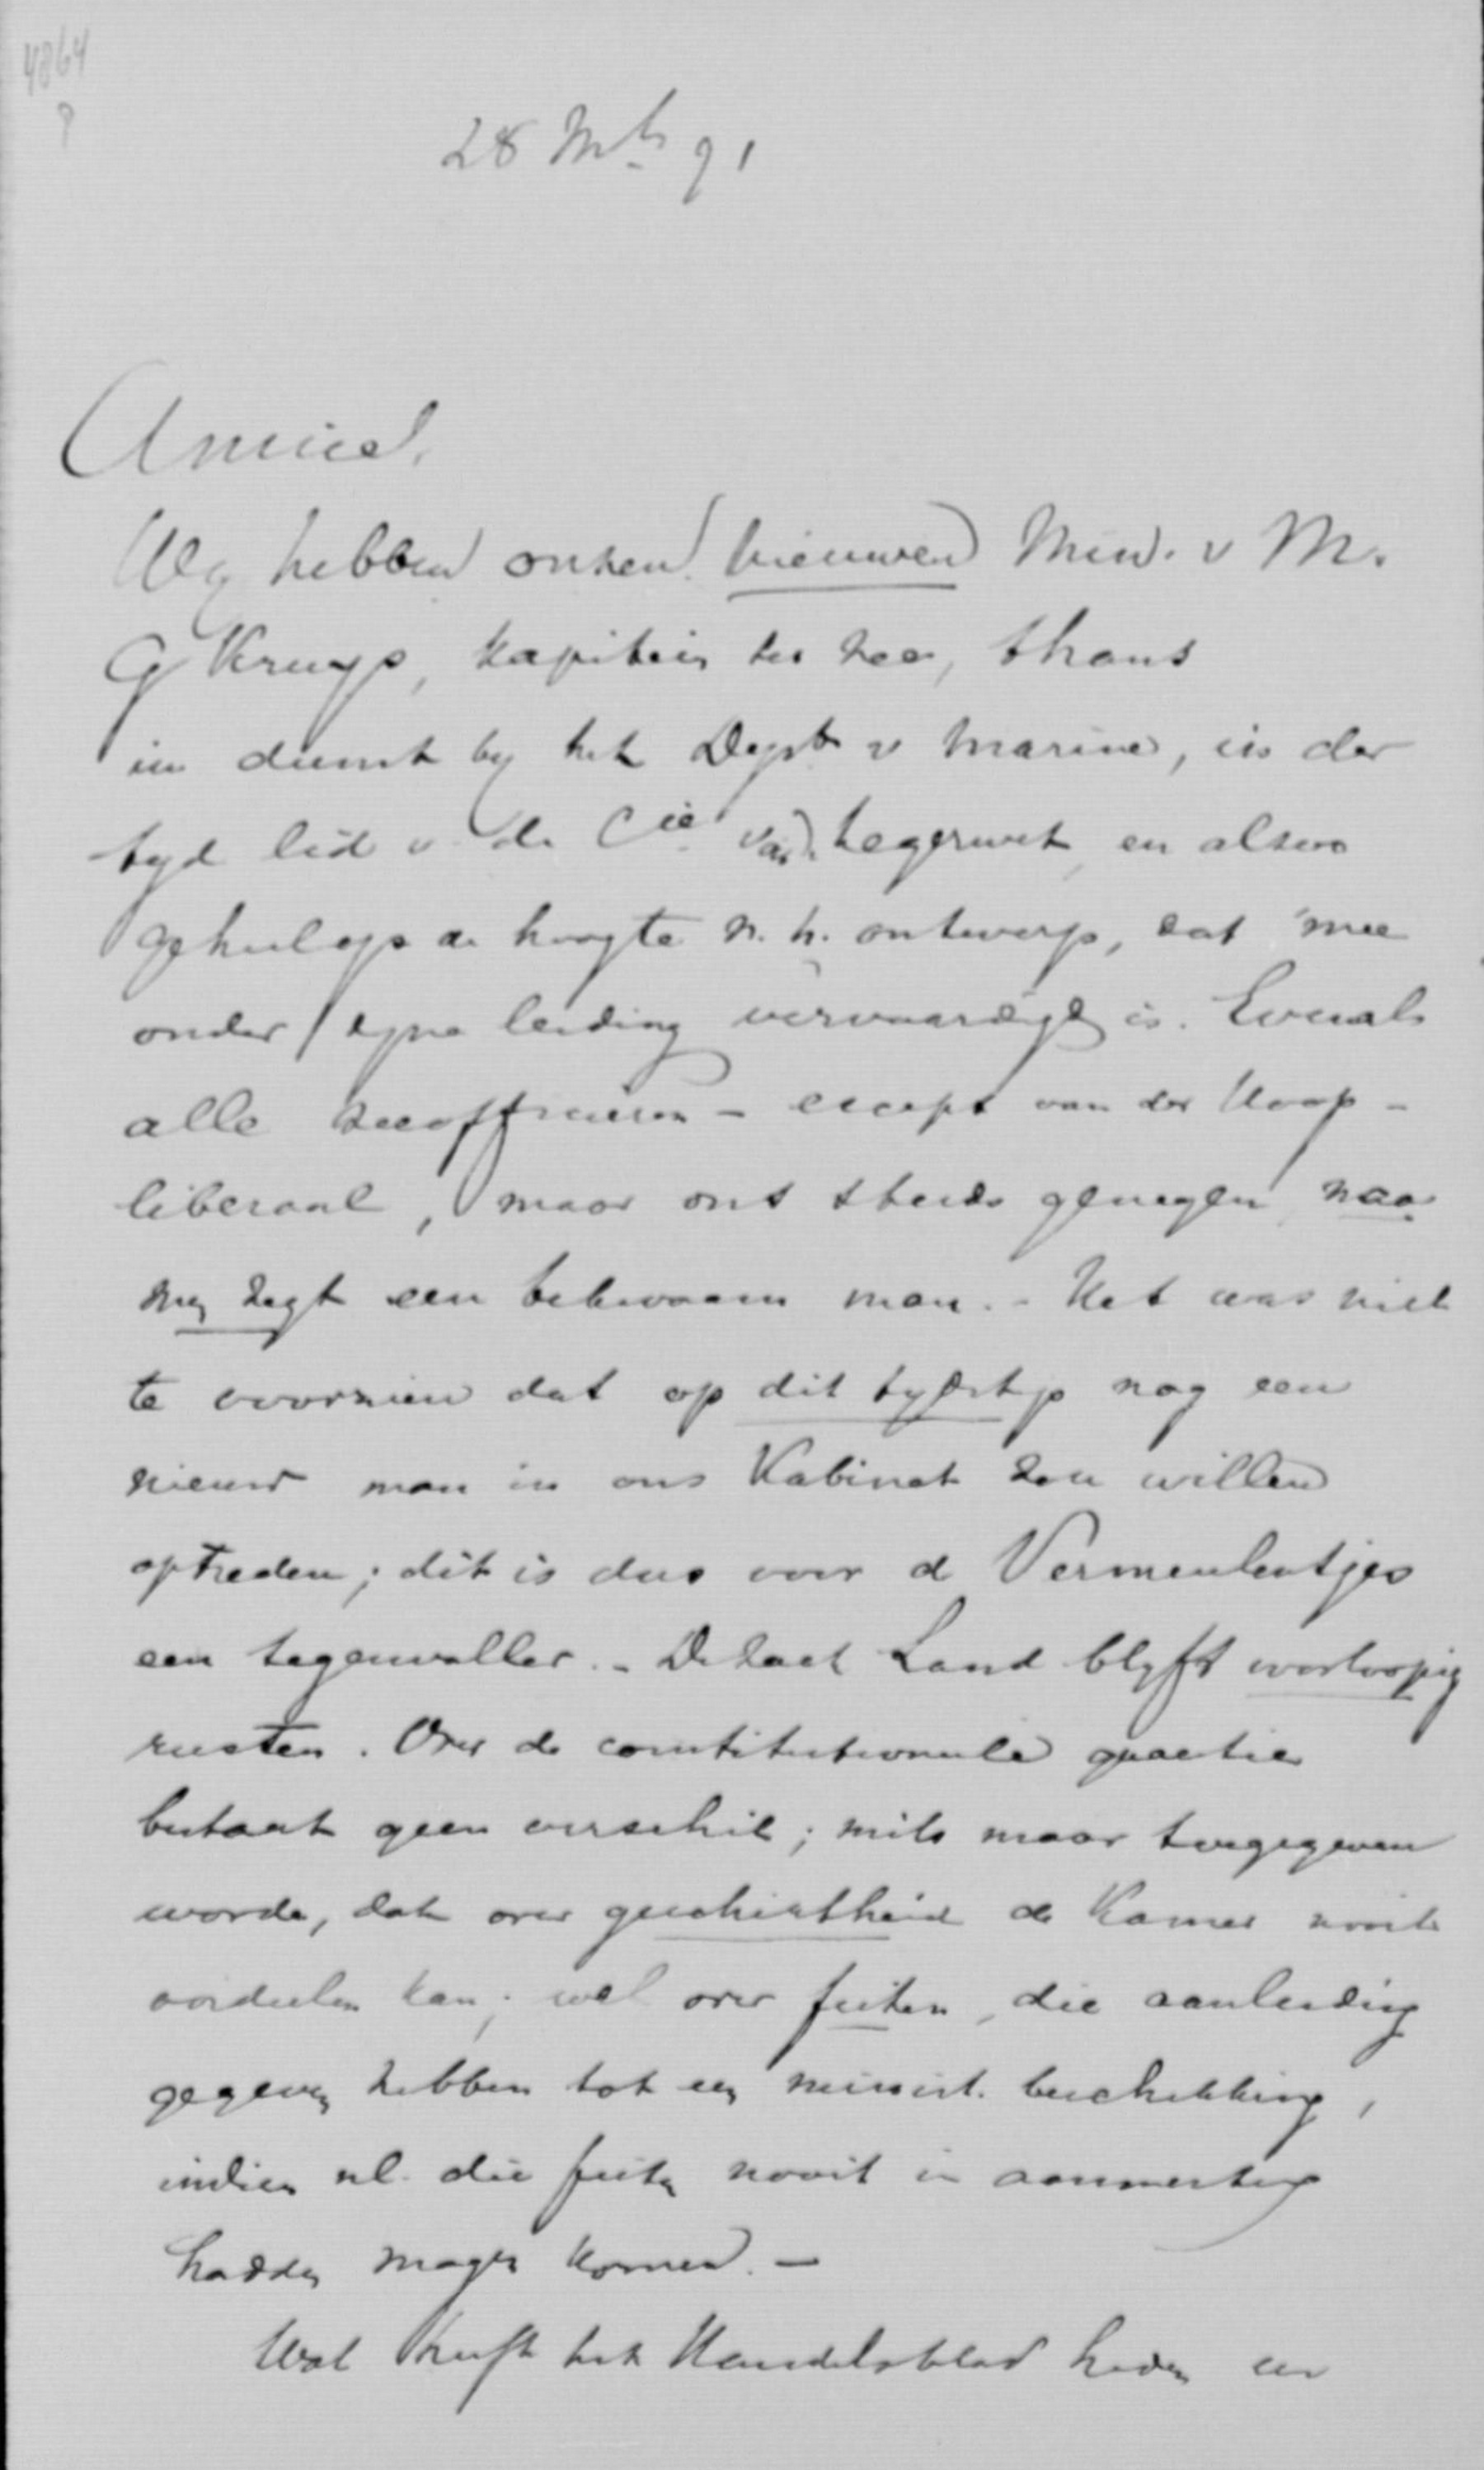 4864
28 Mrt 91
Amice!
Wy hebben onzen nieuwen Min. v M.
G Kruys, kapitein ter zee, thans
in dienst by het Dept v Marine, in der
tyd lid v. de Cie van Legerwet en alzoo
geheel op de hoogte v. h. ontwerp, dat mee
onder zyne leiding vervaardigd is. Evenals
alle zeeofficieren – except van der Hoop –
liberaal, maar ons steeds genegen naar
my zegt een bekwaam man. – Het was niet
te voorzien dat op dit tydstip nog een
nieuw man in ons Kabinet zou willen
optreden; dit is dus voor de Vermeulentjes
een tegenvaller. – De zaak Land blyft voorloopig
rusten. Over de constitutioneele quaestie
bestaat geen verschil; mits maar toegegeven
worde, dat over geschiktheid de Kamer nooit
oordeelen kan; wel over feiten, die aanleiding
gegeven hebben tot een minist. beschikking,
indien nl. die feiten nooit in aanmerking
hadden mogen komen. –
Wat heeft het Handelsblad heden een